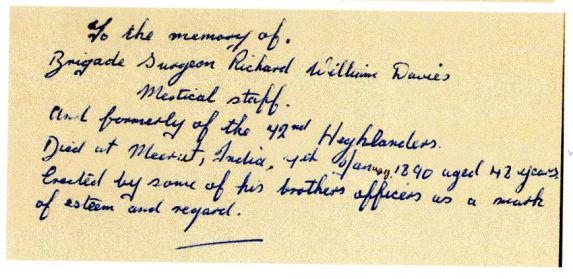 To the memory of.
Brigade Surgeon Richard William Davies
Medical staff.
And formerly of the 42nd Highlanders.
Died at Meerut, India, 4th January 1890 aged 48 years.
Erected by some of his brothers officers as a mark
of esteem and regard.